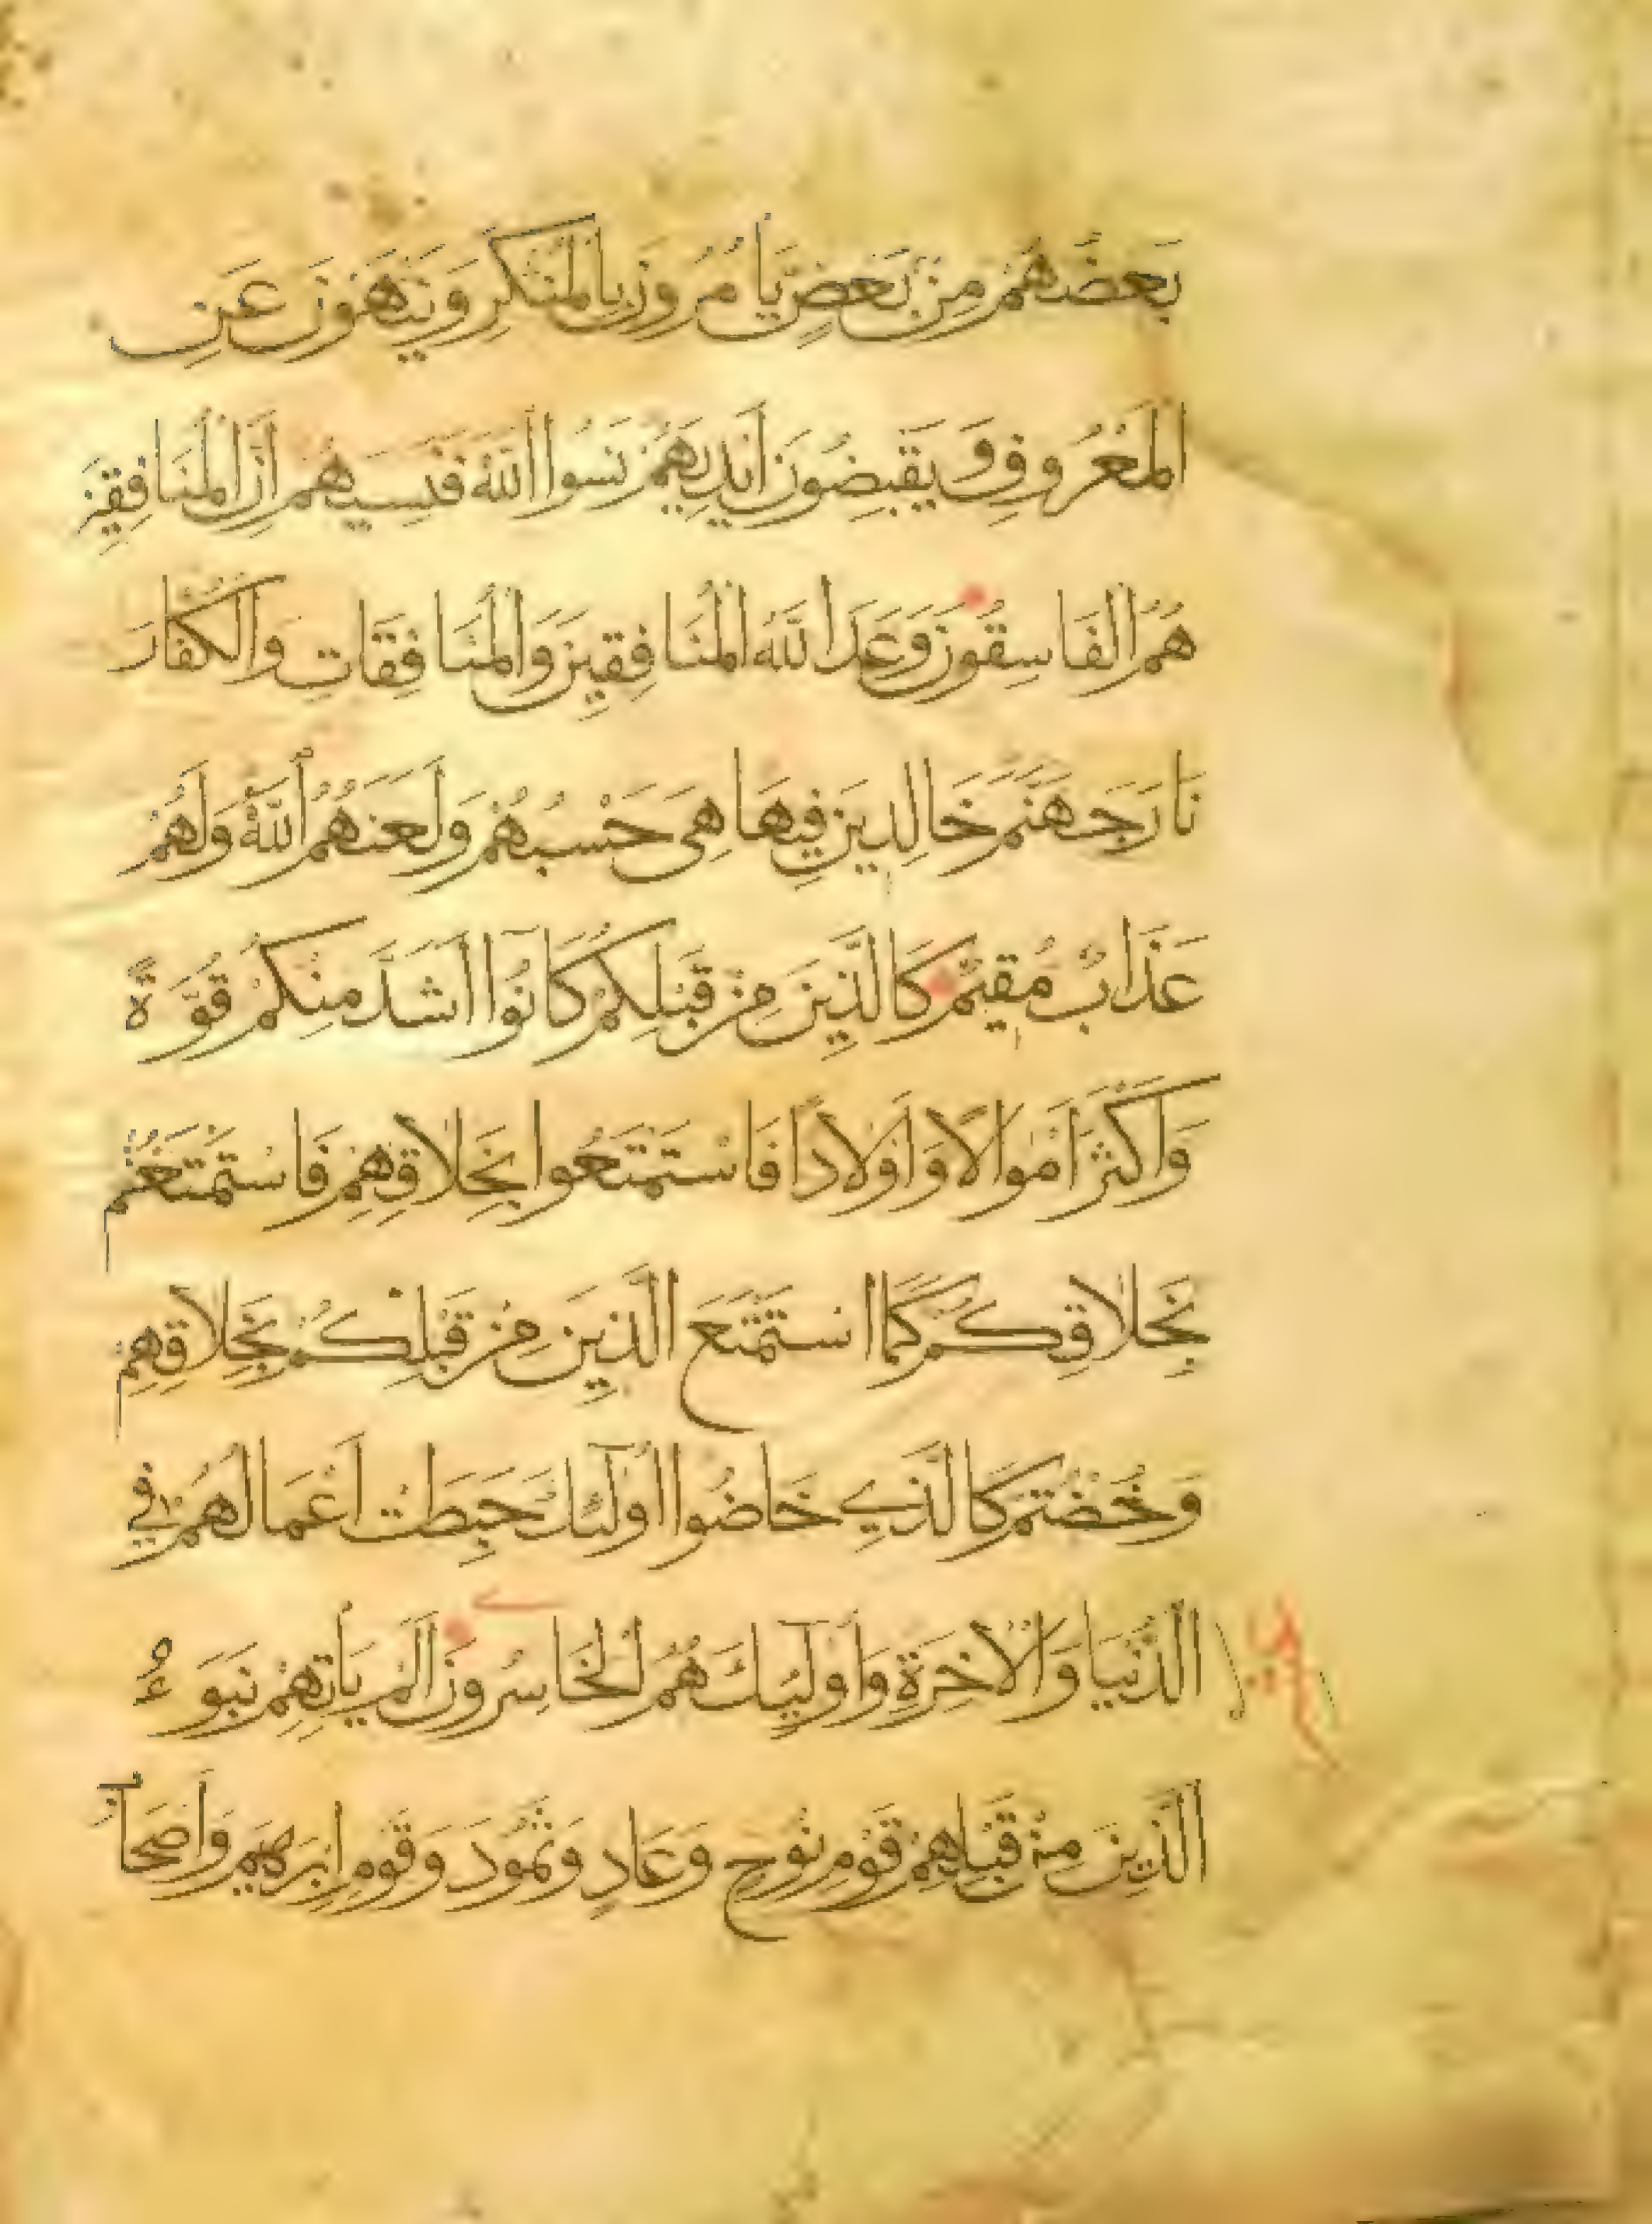 بَعضُهُمْ مِنْ بَعضٍ يَأمُرُونَ بِالمُنْكَرِ وَيَنْهَوْنَ عَنِ
المَعْرُوفِ وَيَقبِضُونَ اَيْدِيَهُمْ نَسُوا اللّٰهَ فَنَسِيَهُمْ اِنَّ المُنَافِقِينَ
هُمُ الفَاسِقُونَ وَعَدَ اللّٰهُ المُنَافِقِينَ وَالمُنَافِقَاتِ وَالكُفَّارَ
نَارَ جَهَنَّمَ خَالِدِينَ فِيهَا هِيَ حَسْبُهُمْ وَلَعَنَهُمُ اللّٰهُ وَلَهُمْ
عَذَابٌ مُقِيمٌ كَالَّذِينَ مِنْ قَبْلِكُمْ كَانُوٓا اَشَدَّ مِنكُمْ قُوَّةً
وَاَكْثَرَ اَمْوَالًا وَاَوْلَادًا فَاسْتَمْتَعُوا بِخَلَاقِهِمْ فَاسْتَمْتَعْتُمْ
بِخَلَاقِكُمْ كَمَا اسْتَمْتَعَ الَّذِينَ مِنْ قَبْلِكُمْ بِخَلَاقِهِمْ
وَخُضْتُمْ كَالَّذِي خَاضُوا اُولٰٓئِكَ حَبِطَتْ اَعْمَالُهُمْ فِي
الدُّنْيَا وَالْاخِرَةِ وَاُولٰٓئِكَ هُمُ الخَاسِرُونَ اَلَمْ يَأتِهِمْ نَبَؤُا
الَّذِينَ مِنْ قَبْلِهِمْ قَوْمِ نُوحٍ وَعَادٍ وَثَمُودَ وَقَوْمِ اِبْرَهِيمَ وَاَصْحَابِ